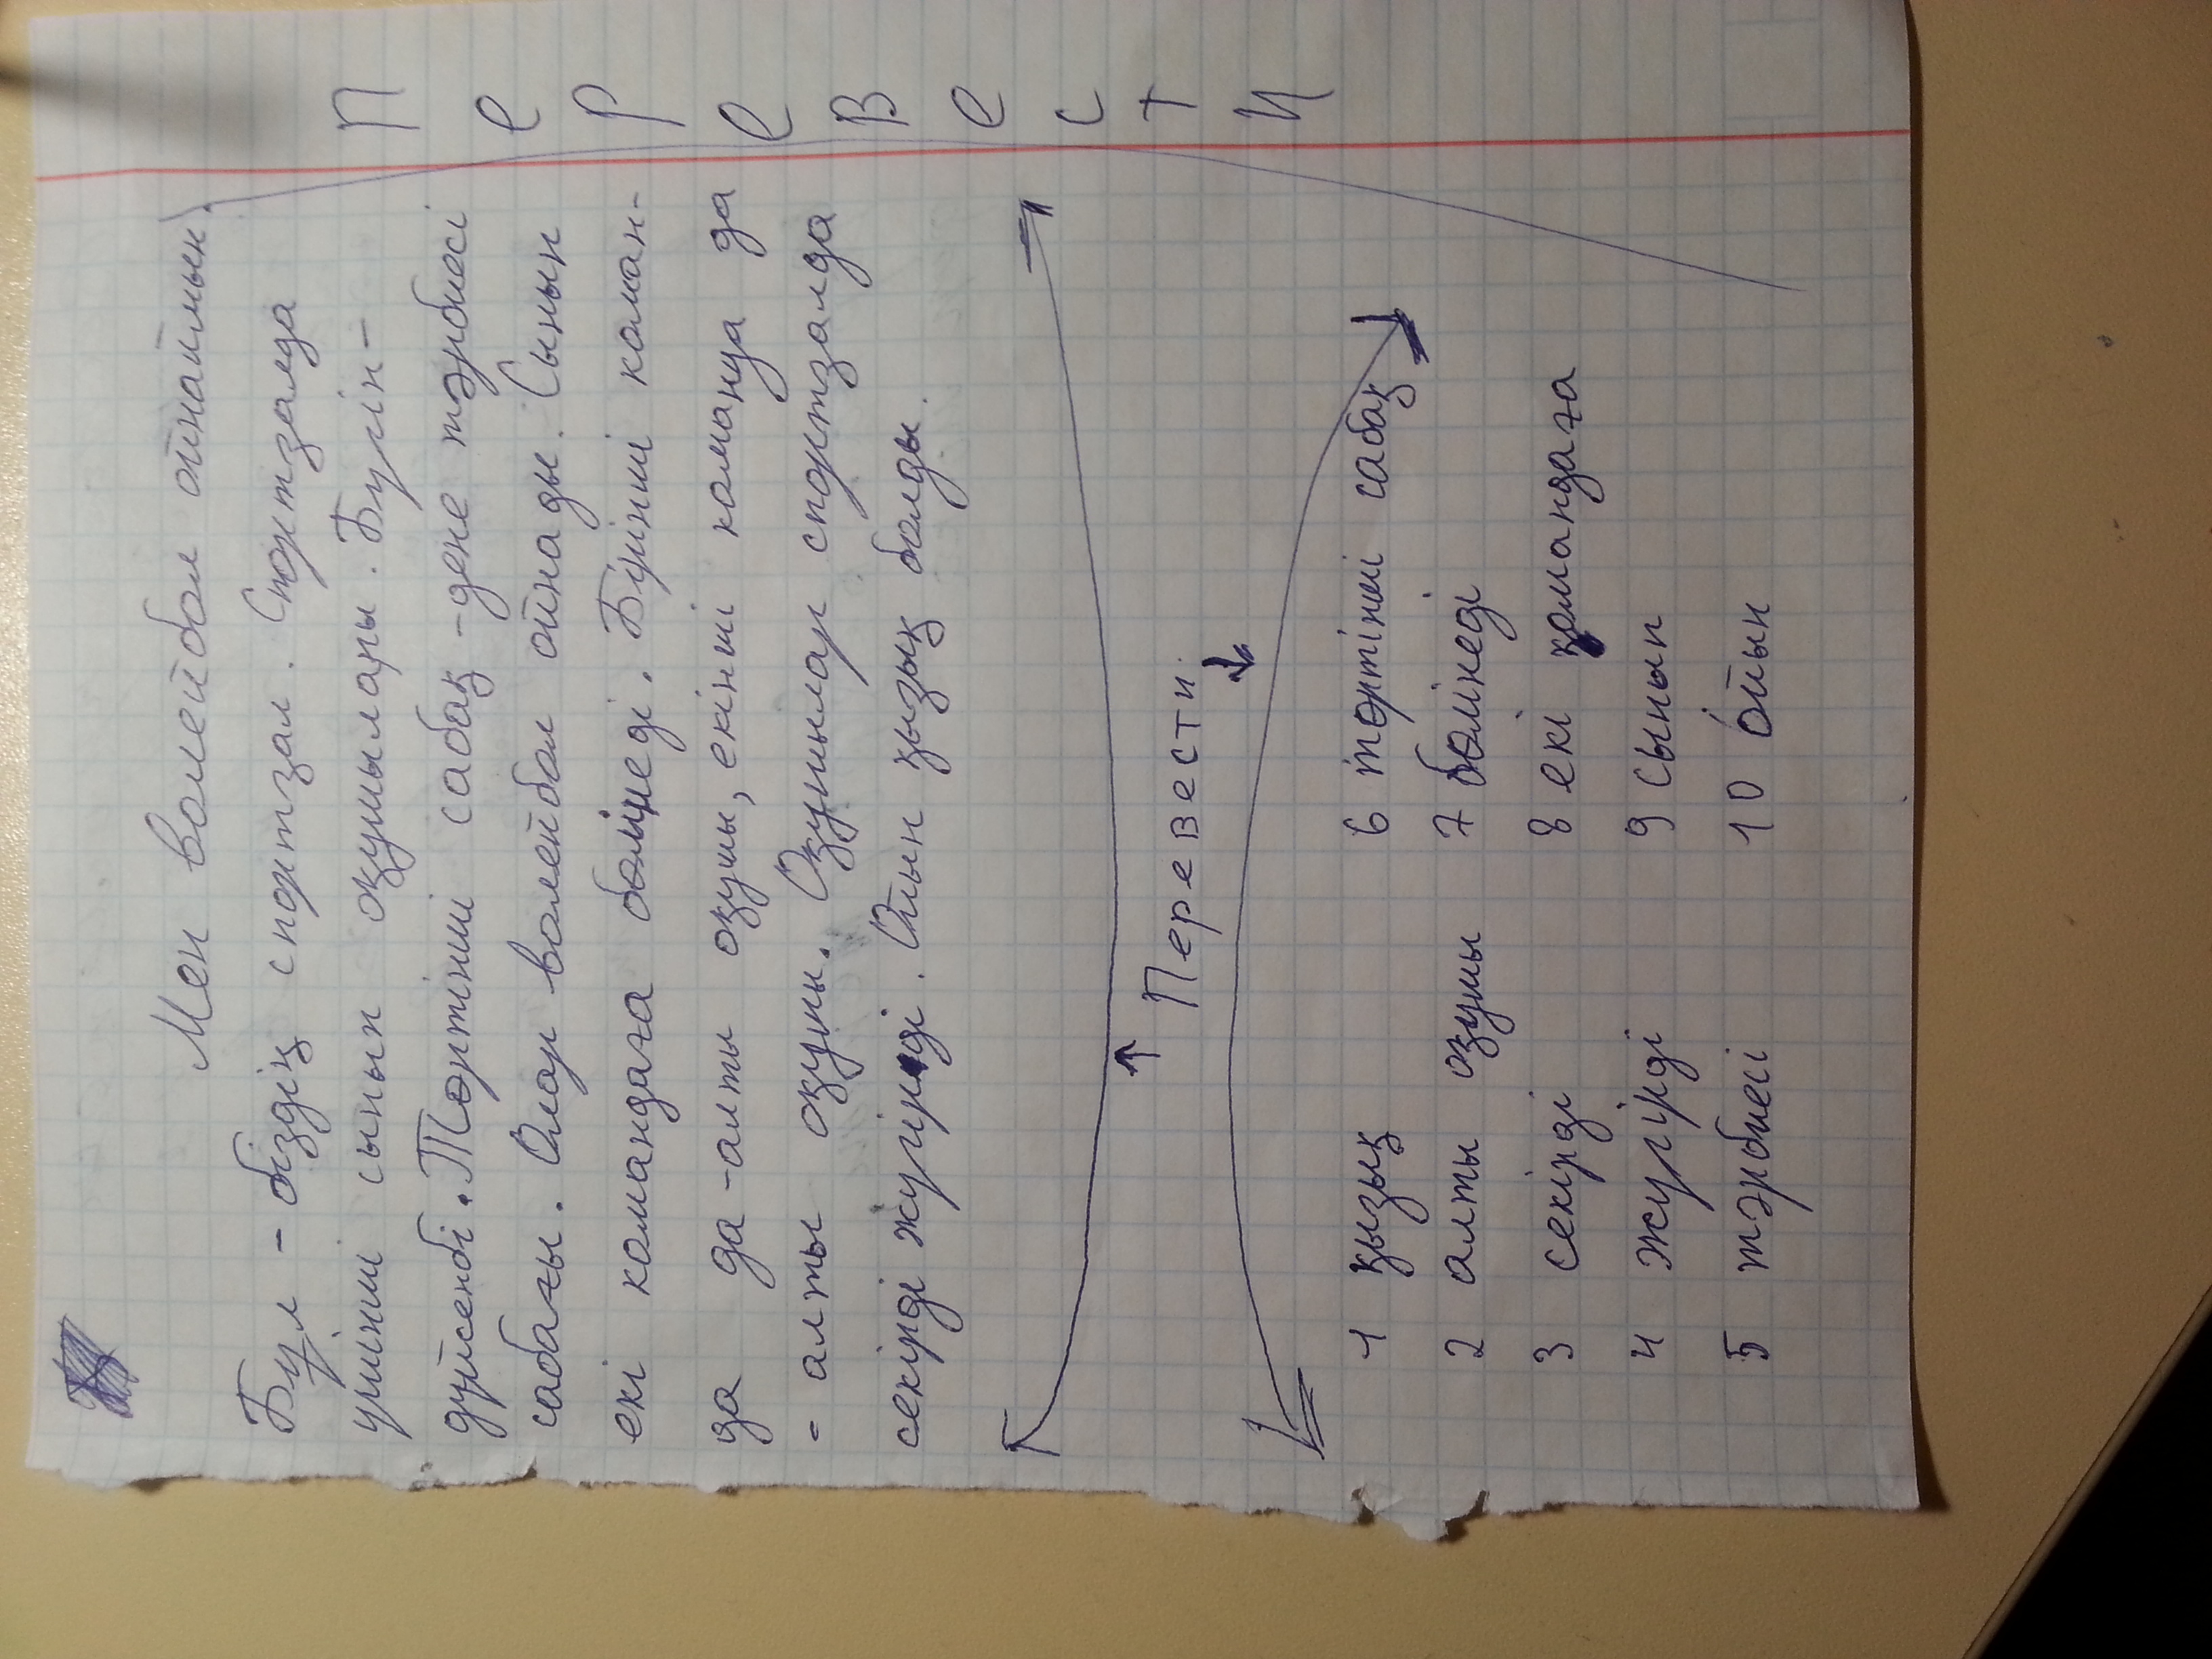 Мен волейбол ойнаймын.
Бұл - біздің спортзал. Спортзалда
үшінші сынып оқушылары. Бүгін -
дүйсенбі. Төртінші сабақ - дене тәрбиесі
сабағы. Олар волейбол ойнады. Сынып
екі командаға бөлінеді. Бірінші коман-
да да - алты оқушы, екінші команда да
- алты оқушы. Оқушылар спортзалда
секірді жүгірді. Ойын қызық болды.
Перевести
Перевести.
1 қызық
2 алты оқушы
3 секірді
4 жүгірді
5 тәрбиесі
6 төртінші сабақ
7 бөлінеді
8 екі қомандаға
9 сынып
10 Ойын